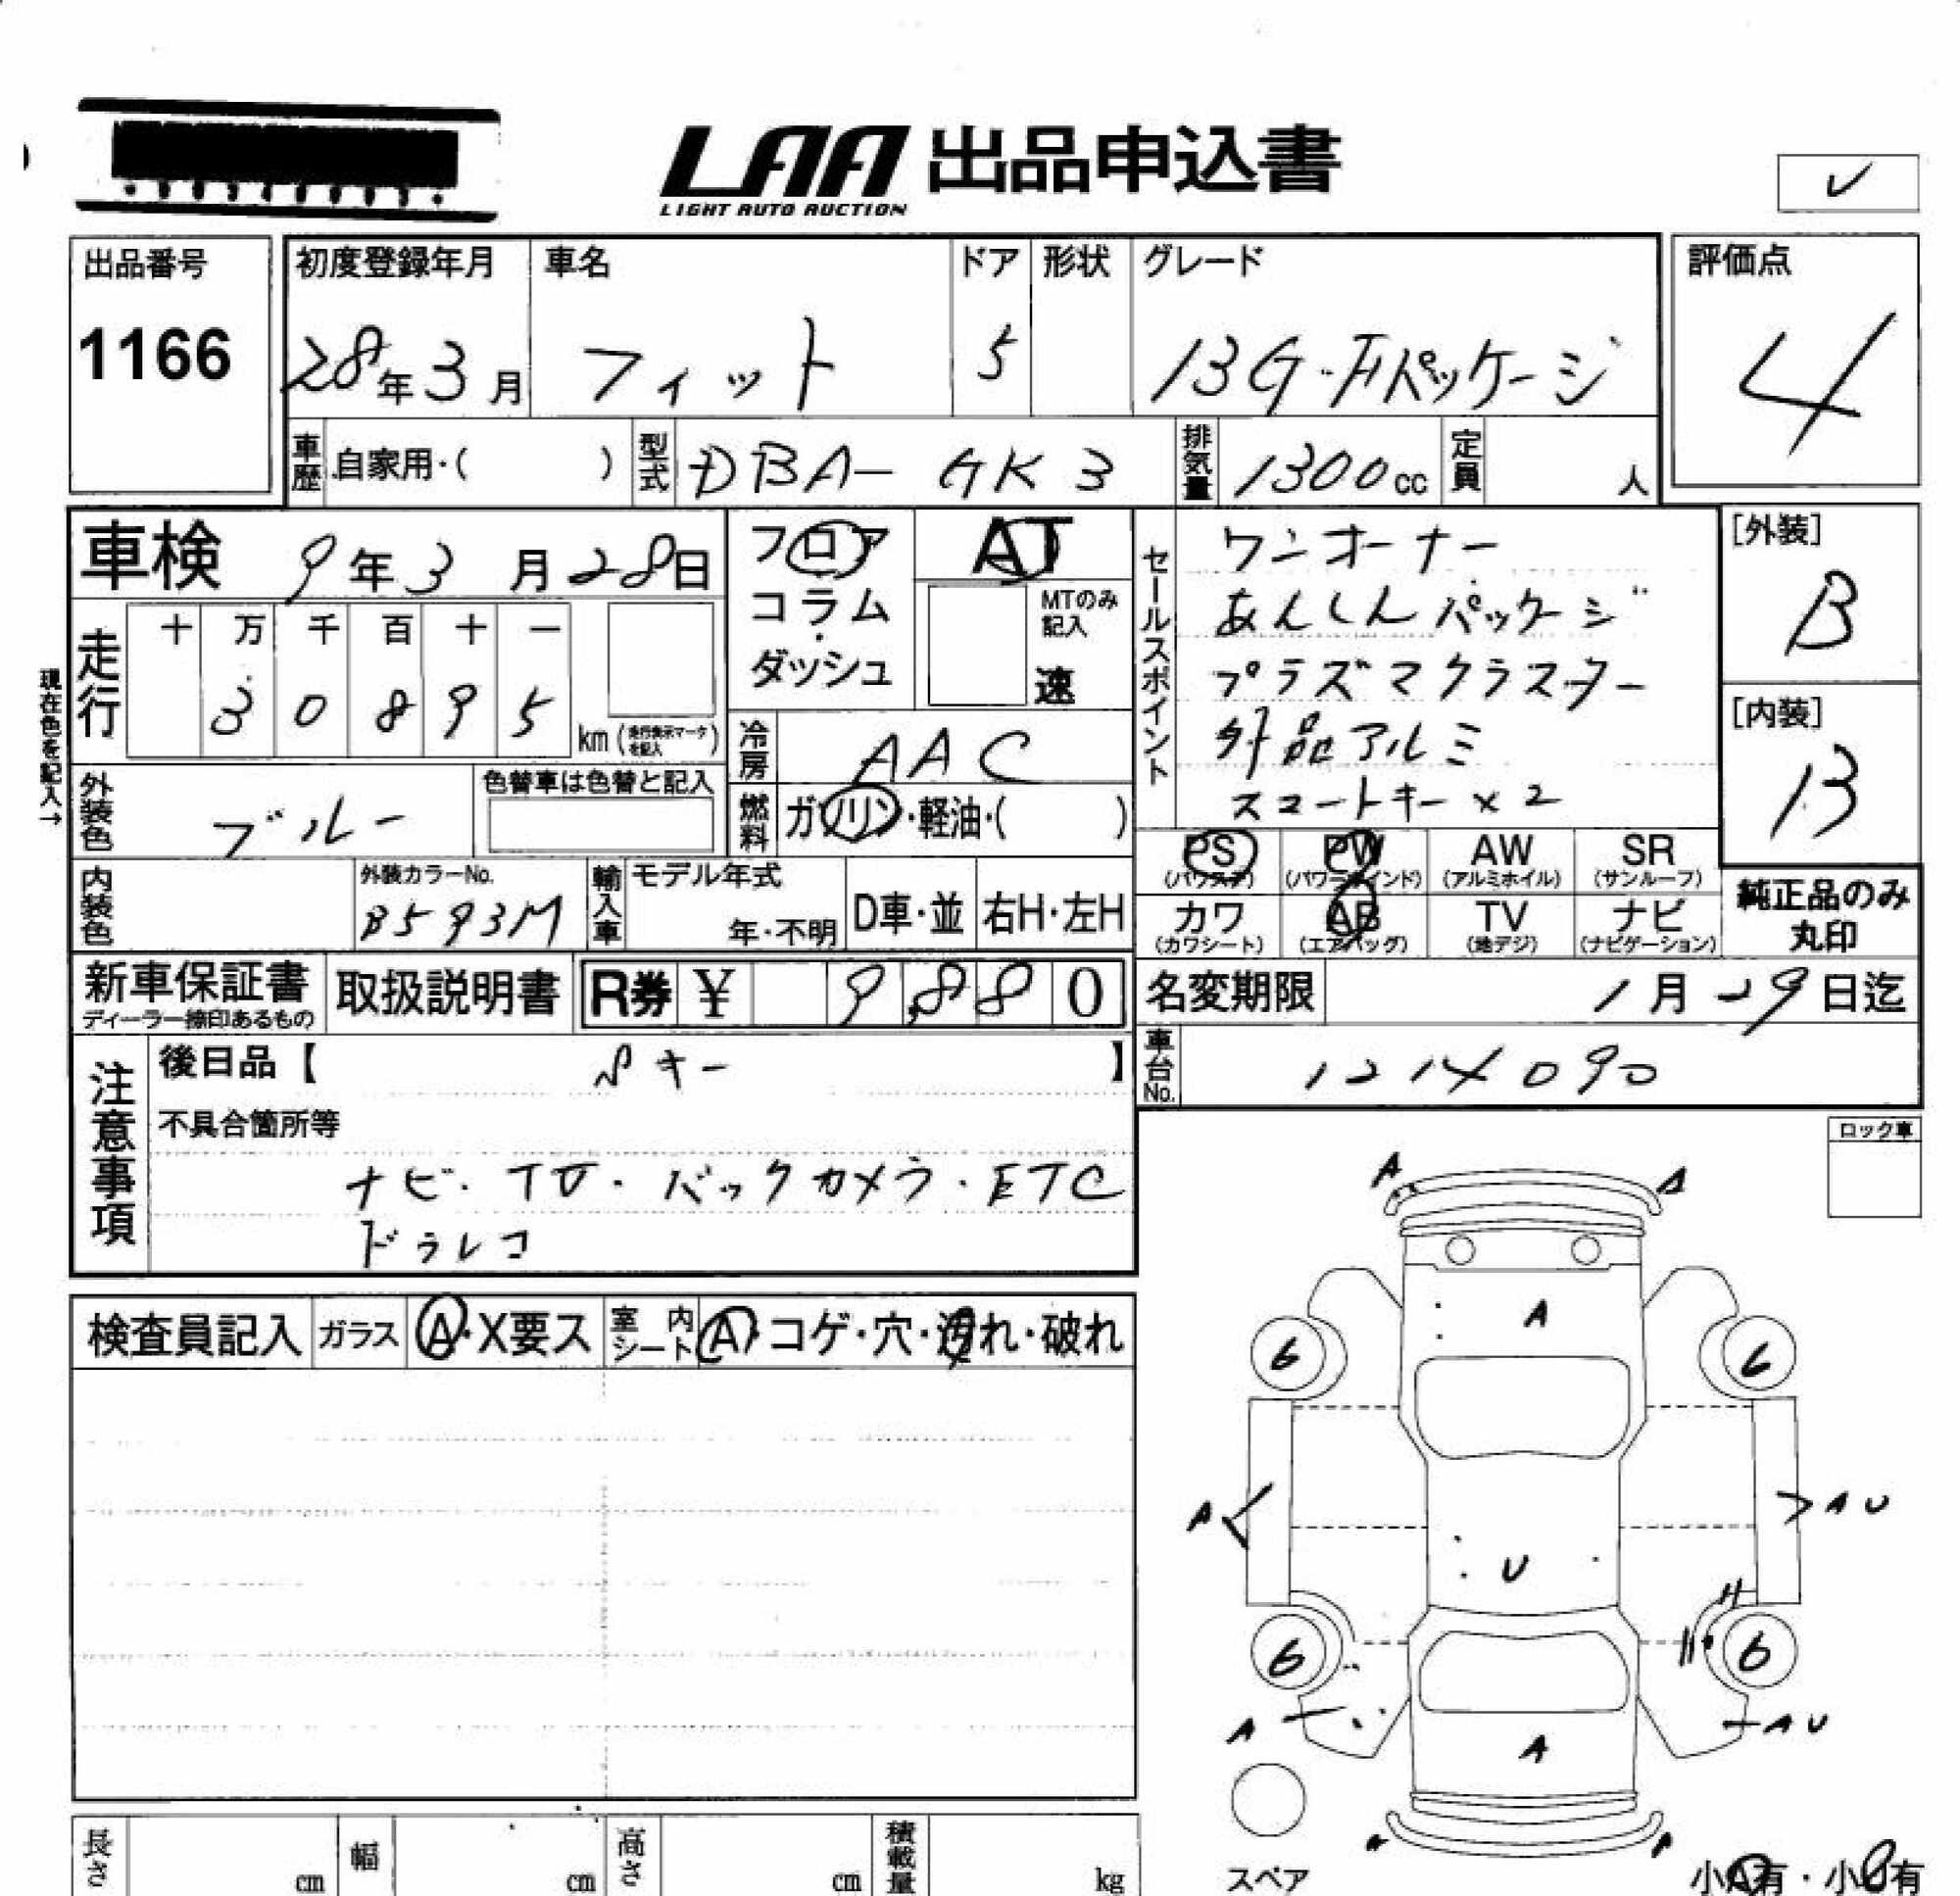 LAA 出品申込書
LIGHT AUTO AUCTION
出品番号
1166
初度登録年月
28年3月
車名
フィット
ドア
5
形状
グレード
13G・Fパッケージ
評価点
4
車歴 自家用・( )
型式 DBA-GK3
排気量 1300cc
定員 人
車検 9年3月28日
フロア
コラム
・
ダッシュ
AT
MTのみ
記入
速
走行
十 万 千 百 十 一
3 0 8 9 5
km(走行表示マークを記入)
現在色を記入→
冷房 AAC
燃料 ガソリン・軽油・( )
外装色 ブルー
色替車は色替と記入
内装色
外装カラーNo.
B593M
輸入車
モデル年式
年・不明
D車・並
右H・左H
セールスポイント
ワンオーナー
あんしんパッケージ
プラズマクラスター
外品アルミ
スマートキー×2
[外装]
B
[内装]
B
PS
(パワステ)
PW
(パワーウインド)
AW
(アルミホイル)
SR
(サンルーフ)
カワ
(カワシート)
AB
(エアバッグ)
TV
(地デジ)
ナビ
(ナビゲーション)
純正品のみ
丸印
新車保証書
ディーラー捺印あるもの
取扱説明書
R券 ¥ 9,880
名変期限 1月29日迄
車台No. 1214090
注意事項
後日品【 キー 】
不具合箇所等
ナビ・TV・バックカメラ・ETC
ドラレコ
ロック車
検査員記入
ガラス
A・X要ス
室内シート
A・コゲ・穴・汚れ・破れ
A A
A
6 6
A A U
U
6 6
A A U
A
スペア
小A有・小U有
長さ cm
幅 cm
高さ cm
積載量 kg